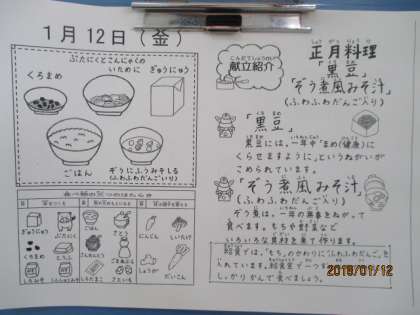 1月12日(金)
ぶたにくとこんにゃくの
いために
ぎゅうにゅう
くろまめ
ごはん
ぞうにふうみそしる
(ふわふわだんごいり)
ぎゅうにゅう
ぶたにく
くろまめ
みそ
ごはん
さとう
こんにゃく
ごま
にんじん
しいたけ
しょうが
だいこん
こんだてしょうかい
献立紹介
正月料理
「黒豆」
「ぞう煮風みそ汁」
(ふわふわだんご入り)
「黒豆」
黒豆には、一年中「まめ(健康)に
くらせますように」というねがいが
こめられています。
「ぞう煮風みそ汁」
ぞう煮は、一年の無事をねがって
食べます。もちや野菜など
いろいろな具材を煮て作ります。
給食では、「もち」のかわりに「ふわふわだんご」を
入れています。給食室で一つず
しっかりかんで食べましょう。
2018/01/12